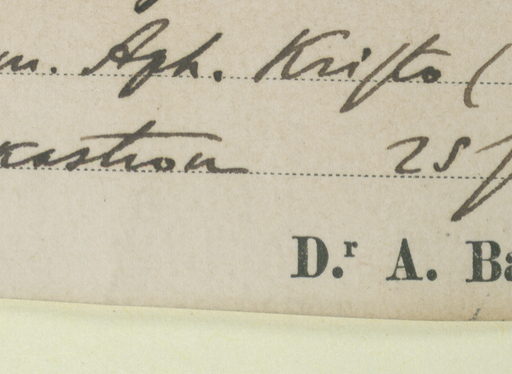 m. Aph. Kristo (
kastron 25/
D.r A. Ba